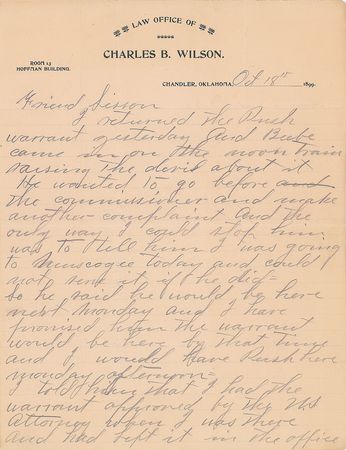 LAW OFFICE OF
CHARLES B. WILSON.
ROOM 13
HOFFMAN BUILDING.
CHANDLER, OKLAHOMA, Oct 18th 1899.
Friend Sisson
I returned the Rush
warrant yesterday and Bube
came in on the noon train
raising the devil about it
He wanted to go before and
the commissioner and make
another complaint and the
only way I could stop him
was to tell him I was going
to Muscogee today and could
not serve it if he did-
so he said he would be here
next Monday and I have
promised him the warrant
would be here by that time
and I would have Rush here
monday afternoon-
I told him that I had the
warrant approved by the US
Attorney when I was there
and had left it in the office